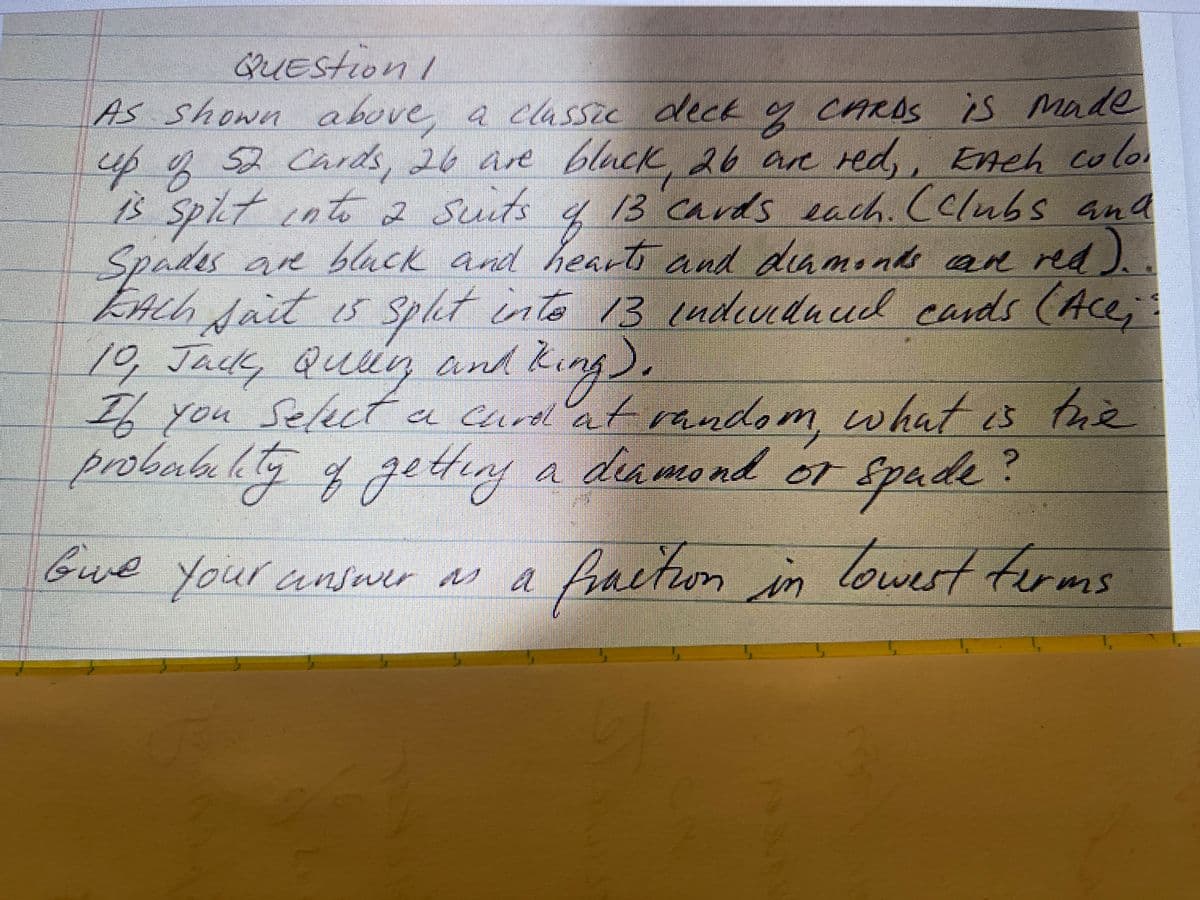 QUEStion 1
AS shown above, a classic deck of CARDS is made
up of 52 cards, 26 are black, 26 are red,, EACh color
is split into 2 suits of 13 cards each. (Clubs and
Spades are black and hearts and diamonds are red).
EACh suit is split into 13 individual cards (Ace,
10, Jack, Queen, and King).
If you Select a card at random, what is the
probability of getting a diamond or spade?
Give your answer as a fraction in lowest terms